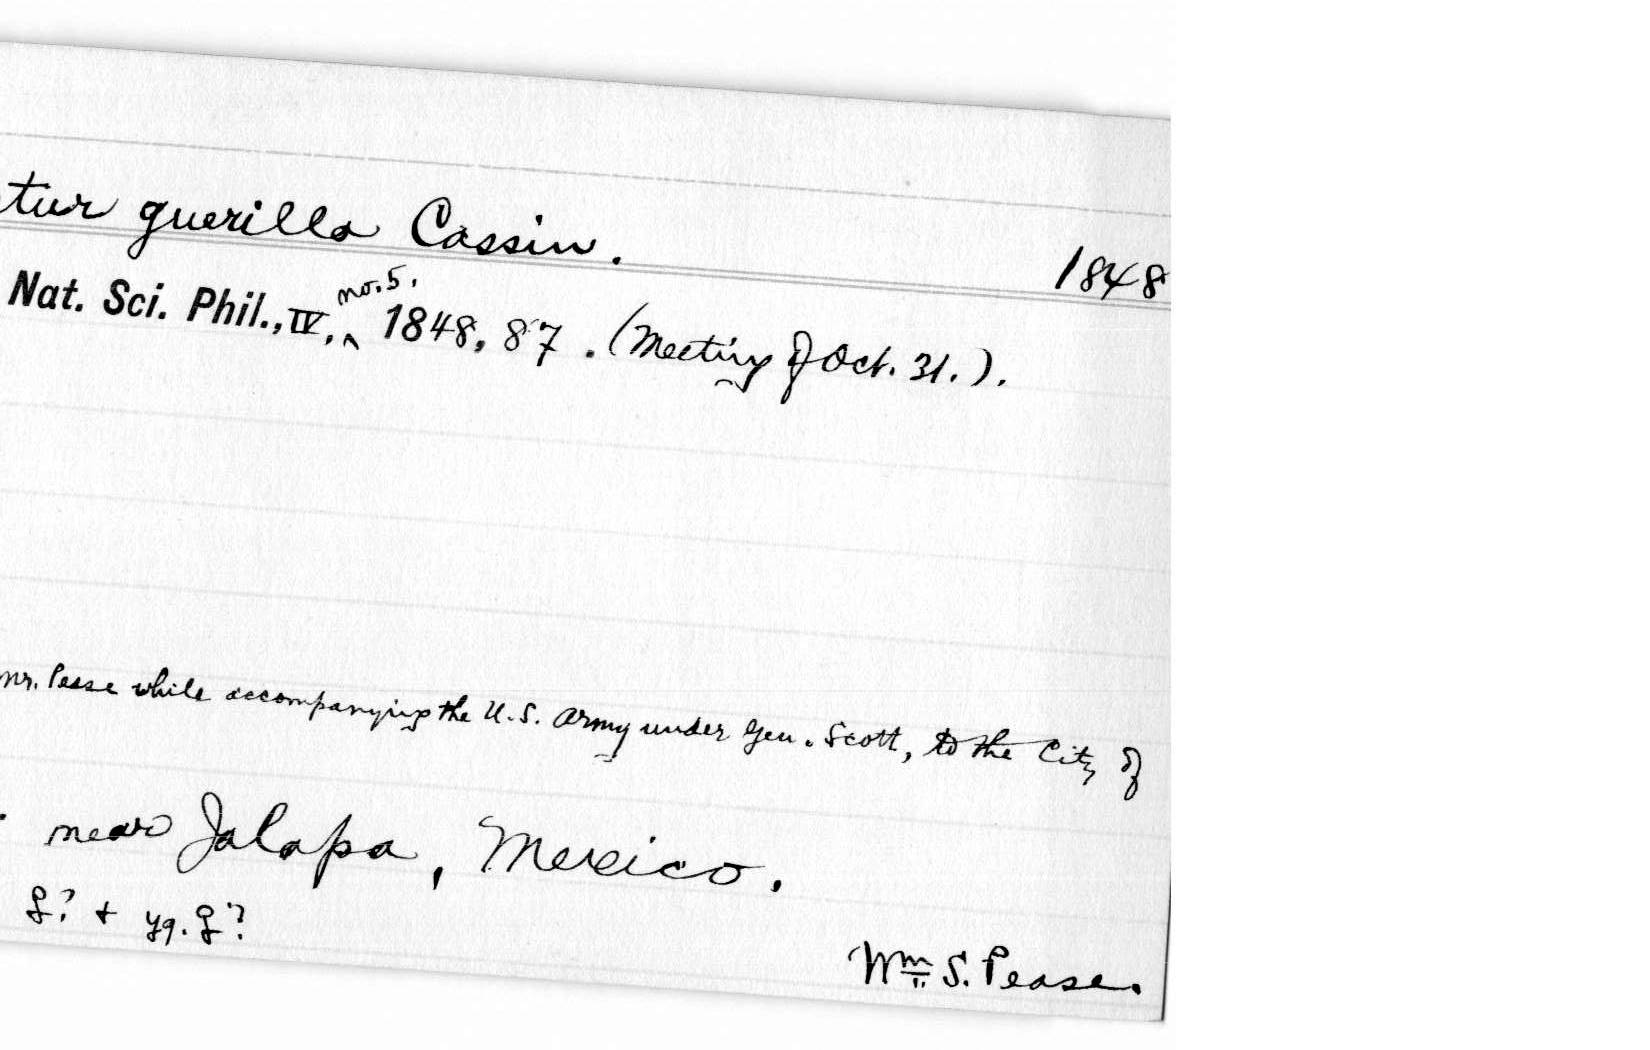 tur guerilla Cassin. 1848
Nat. Sci. Phil., IV, no. 5, 1848, 87. (Meeting of Oct. 31.).
Mr. Pease while accompanying the U.S. Army under Gen. Scott, to the City of
near Jalapa, Mexico.
♀? + yg. ♀?
Wm S. Pease.